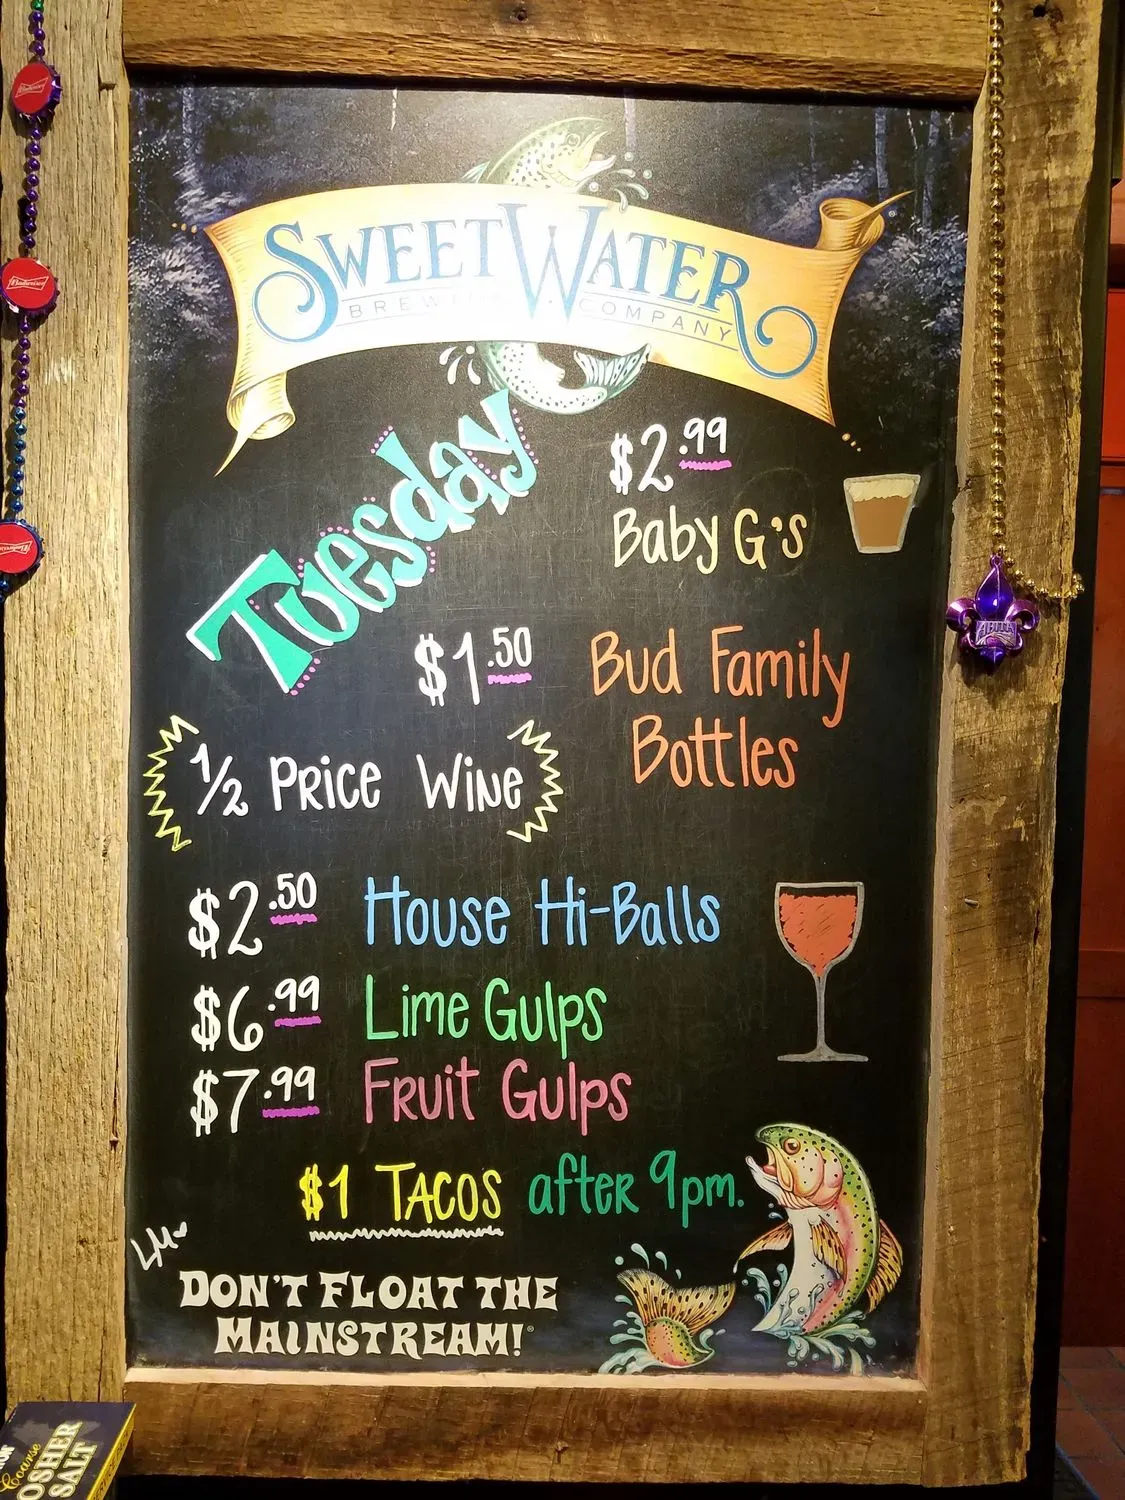 SWEETWATER
BREWING COMPANY
Tuesday
$2.99
Baby G's
$1.50 Bud Family
Bottles
1/2 Price Wine
$2.50 House Hi-Balls
$6.99 Lime Gulps
$7.99 Fruit Gulps
$1 TACOS after 9pm.
LM
DON'T FLOAT THE
MAINSTREAM!®
Budweiser
Budweiser
Budweiser
ABITA
Coarse
OSHER
SALT